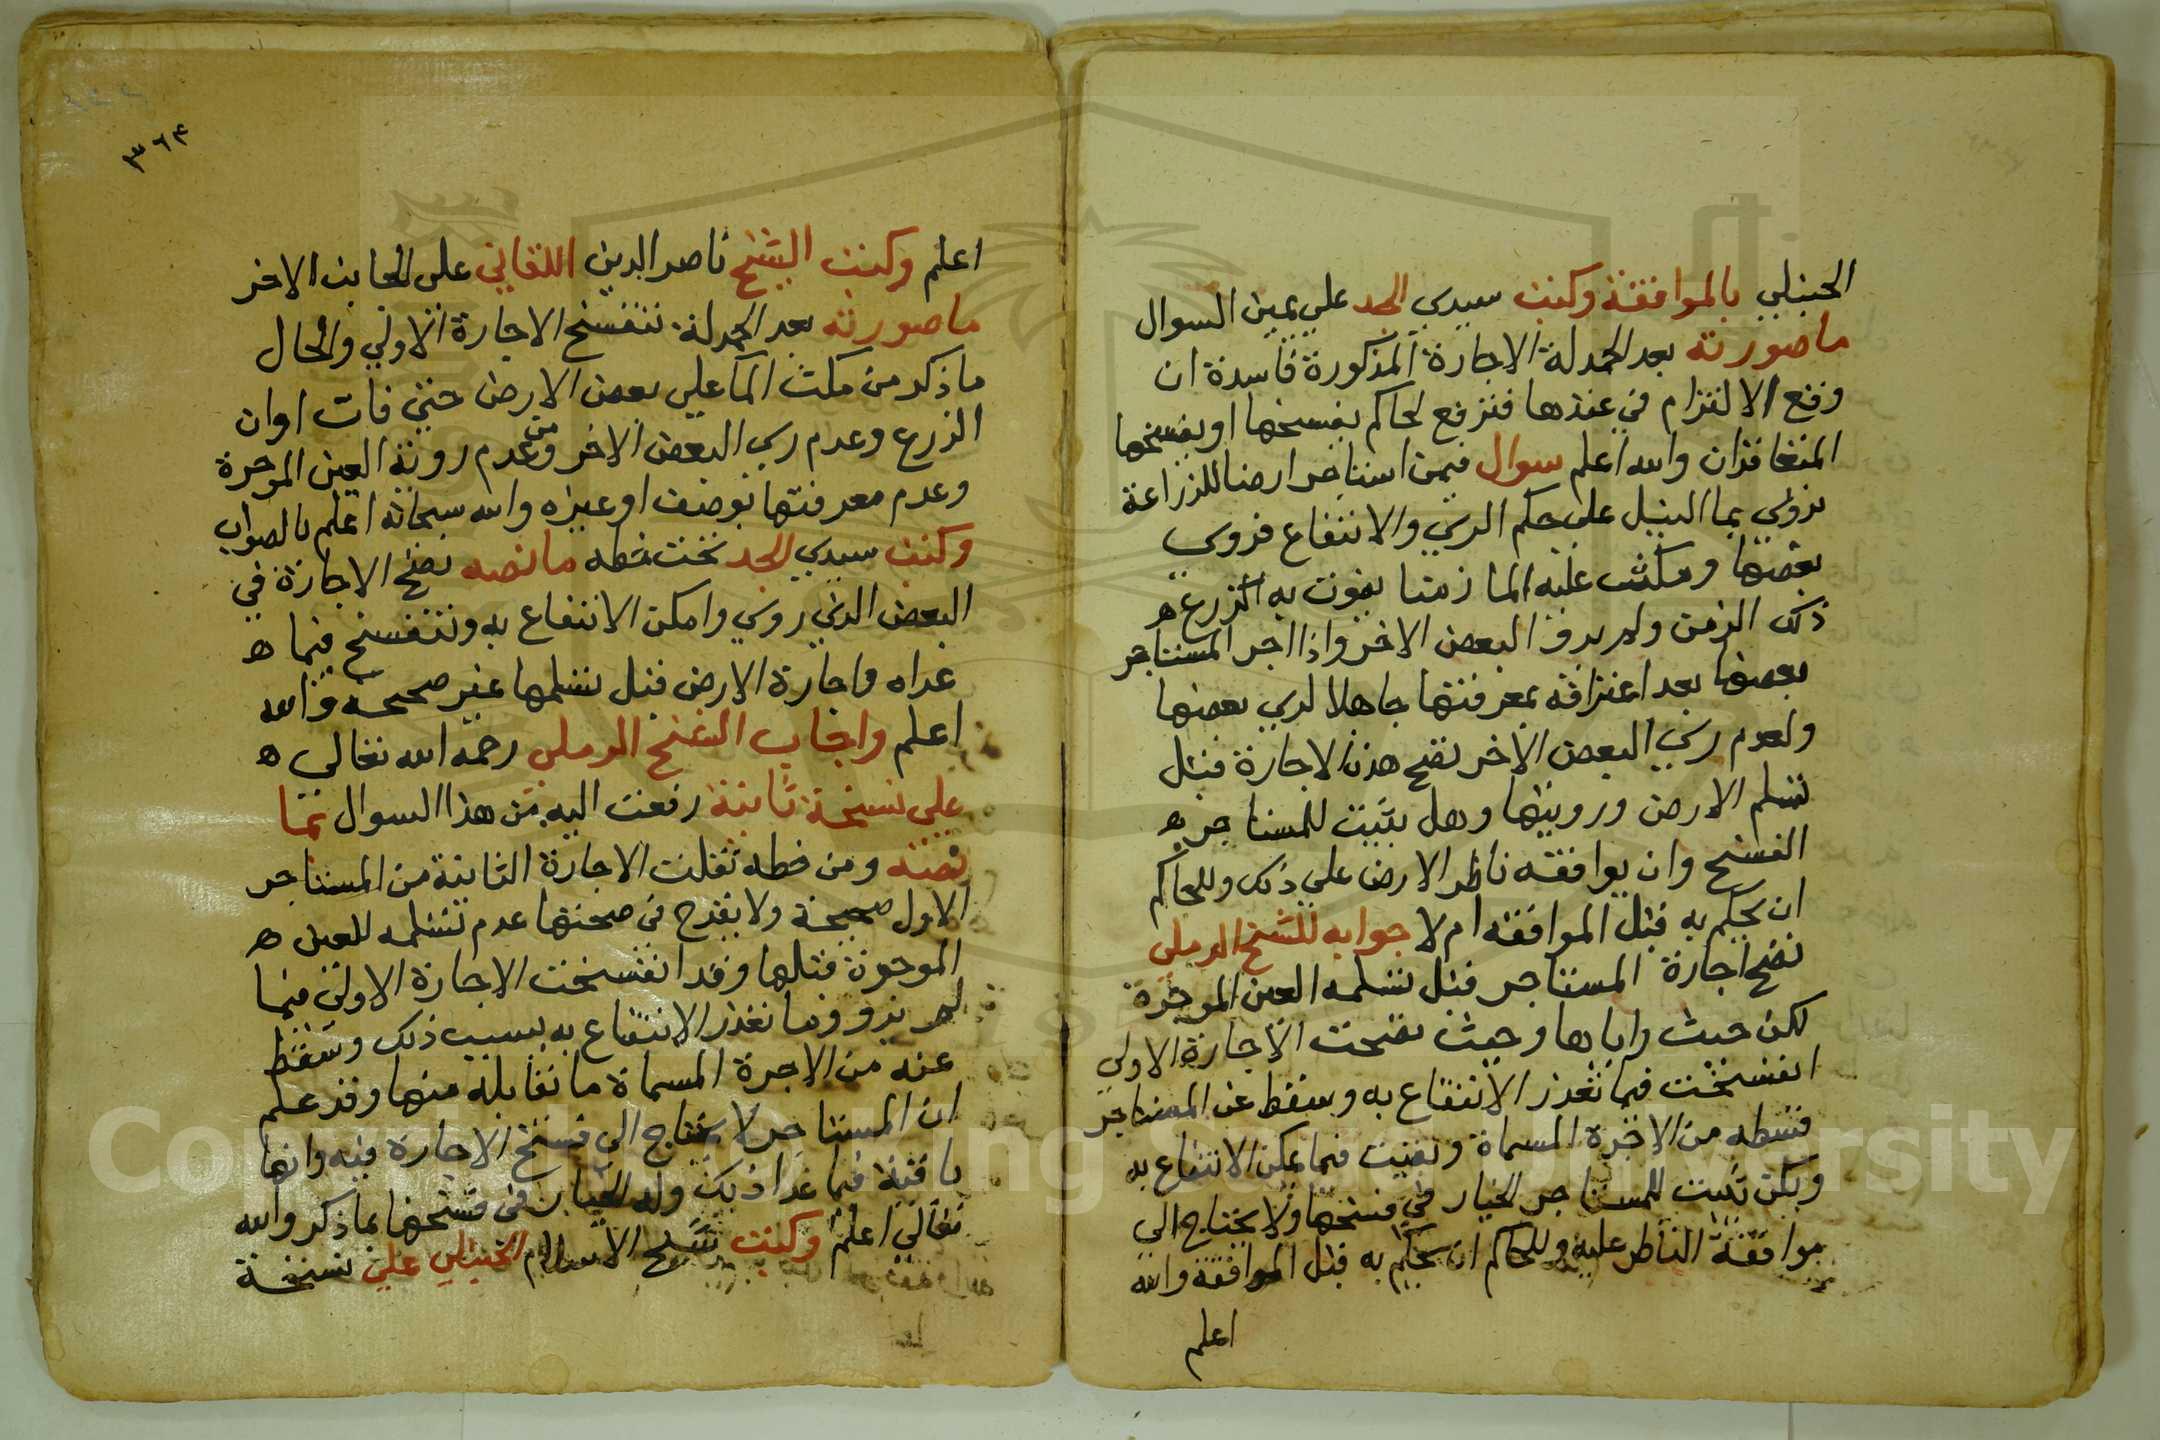 الحنبلي بالموافقة وكتب سيدي الجد علي يمين السوال
ما صورته بعد الحمدلة الاجارة المذكورة فاسدة ان
وقع الالتزام في عقدها فترفع لحاكم يفسخها او يفسخها
المتعاقدان والله اعلم سوال فيمن استاجر ارضا للزراعة
تروي بما النيل علي حكم الري والانتفاع فروي
بعضها ومكث عليه الما زمنا يفوت به الزرع ه
ذلك الزمن ولم يرو البعض الاخر واذا اجر المستاجر
بعضها بعد اعترافه بمعرفتها جاهلا لري بعضها
ولعدم ري البعض الاخر تصح هذه الاجارة قبل
تسلم الارض ورويتها وهل يثبت للمستاجر ه
الفسخ وان يوافقه ناظر الارض علي ذلك وللحاكم
ان يحكم به قبل الموافقه ام لا جوابه للشيخ الرملي
تصح اجارة المستاجر قبل تسلمه العين الموجرة
لكن حيث راياها وحيث صحت الاجارة الاولي
انفسخت فيما تعذر الانتفاع به وسقط عن المستاجر
قسطه من الاجرة المسماة وبقيت فيما يمكن الانتفاع به
ولكن ثبت للمستاجر الخيار في فسخها ولا يحتاج الي
موافقة الناظر عليه وللحاكم ان يحكم به قبل الموافقة والله
اعلم
٣٦٤
اعلم وكتب الشيخ ناصر الدين اللقاني علي الجانب الاخر
ما صورته بعد الحمدلة تنفسخ الاجارة الاولي والحال
ما ذكر من مكث الما علي بعض الارض حتي فات اوان
الزرع وعدم ري البعض الاخر ومن عدم روية العين الموجرة
وعدم معرفتها بوصف او غيره والله سبحانه اعلم بالصواب
وكتب سيدي الجد تحت خطه ما نصه تصح الاجارة في
البعض الذي روي وامكن الانتفاع به وتنفسخ فيما ه
عداه واجارة الارض قبل تسلمها غير صحيحه والله
اعلم واجاب الشيخ الرملي رحمه الله تعالي ه
علي نسخة ثانية رفعت اليه من هذا السوال بما
نصه ومن خطه نقلت الاجارة الثانية من المستاجر
الاول صحيحة ولا يقدح في صحتها عدم تسلمه للعين ه
الموجرة قبلها وقد انفسخت الاجارة الاولي فيما
لم يرو وما تعذر الانتفاع به بسبب ذلك وسقط
عنه من الاجرة المسماة ما تقابله منها وقد علم
ان المستاجر لا يحتاج الي فسخ الاجارة فيه وانها
باقية فيما عدا ذلك وله الخيار في فسخها بما ذكر والله
تعالي اعلم وكتب شيخ الاسلام الحنبلي علي نسخة
Copyright © King Saud University